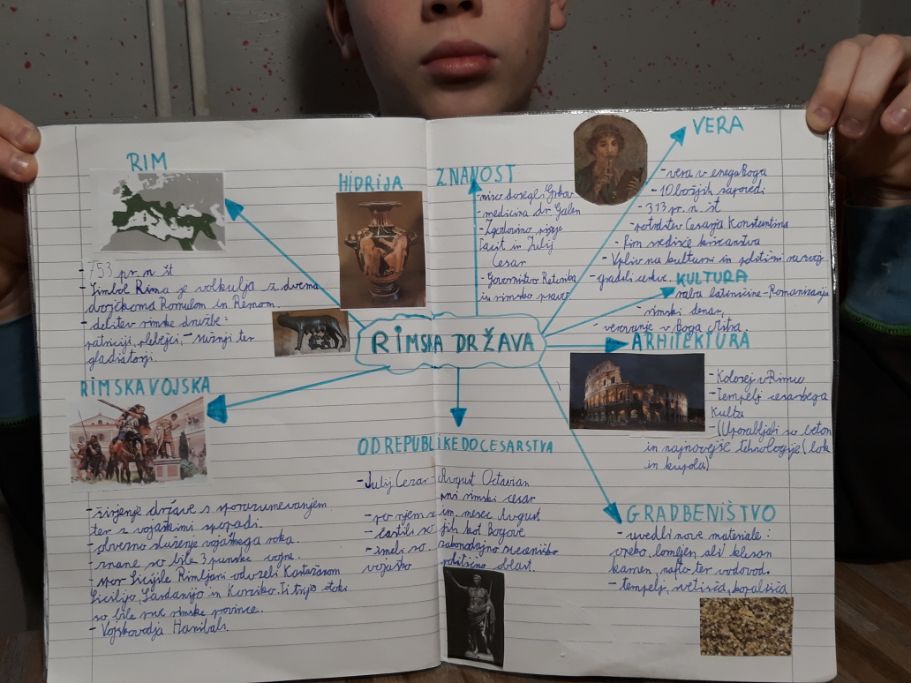 RIM
- 753 pr. n. št
- Simbol Rima je volkulja z dvema
dvojčkoma Romulom in Remom.
- delitev rimske družbe:
patriciji, plebejci, - sužnji ter
gladiatorji.
HIDRIJA
ZNANOST
- niso dosegli Grkov
- medicina dr. Galen
- Zgodovino piseje
Tacit in Julij
Cesar
- Govorništvo Retorika
in rimsko pravo
VERA
- vera v enega Boga
- 10 božjih zapovedi
- 313 pr. n. št
- potrditev Cesarja Konstantina
- Rim središče krščanstva
- Vpliv na kulturni in politični razvoj
- gradili cerkve.
KULTURA
raba latinščine - Romanizacija
- rimski denar,
- verovanje v boga Mitra.
RIMSKA DRŽAVA
ARHITEKTURA
- Kolosej v Rimu
- Tempelj cesarskega
Kulta
- (Uporabljali so beton
in najnovejše tehnologije (lok
in kupola)
RIMSKA VOJSKA
- širjenje države s sporazumevanjem
ter z vojaškimi spopadi.
- obvezno služenje vojaškega roka.
- znane so bile 3 punske vojne.
- spor Sicilije Rimljani odvzeli Kartažanom
Sicilijo, Sardinijo in Korziko. Ti trije otoki
so bile prve rimske province.
- Vojskovodja Hanibal.
OD REPUBLIKE DO CESARSTVA
- Julij Cezar - Avgust Octavian
prvi rimski cesar
- po njem so im. mesec Avgust
- častili so jih kot Bogove
- imeli so zakonodajno
vojaško politično oblast.
GRADBENIŠTVO
- uvedli nove materiale:
opeko lomljen ali klesan
kamen, nafto ter vodovod.
- tempelj, svetišča, kopališča